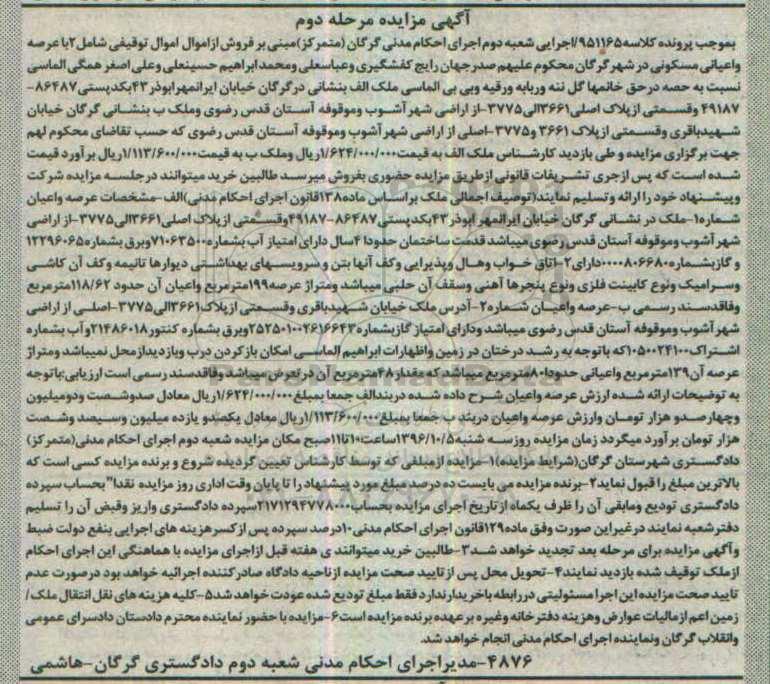 آگهی مزایده مرحله دوم
بموجب پرونده کلاسه۹۵۱۱۶۵/اجرایی شعبه دوم اجرای احکام مدنی گرگان (متمرکز)مبنی بر فروش ازاموال اموال توقیفی شامل۲با عرصه
واعیانی مسکونی در شهر گرگان محکوم علیهم صدرجهان رایج کفشگیری وعباسعلی ومحمدابراهیم حسینعلی وعلی اصغر همگی الماسی
نسبت به حصه درحق خانمها گل ننه وربابه ورقیه وبی بی الماسی ملک الف بنشانی درگرگان خیابان ایرانمهرابوذر۴۳بکدپستی۸۶۴۸۷-
۴۹۱۸۷ وقسمتی ازپلاک اصلی۳۶۶۱الی۳۷۷۵-از اراضی شهر آشوب وموقوفه آستان قدس رضوی وملک ب بنشانی گرگان خیابان
شهیدباقری وقسمتی ازپلاک ۳۶۶۱ و۳۷۷۵-اصلی از اراضی شهر آشوب وموقوفه آستان قدس رضوی که حسب تقاضای محکوم لهم
جهت برگزاری مزایده و طی بازدید کارشناس ملک الف به قیمت۱/۶۲۴/۰۰۰/۰۰۰ریال وملک ب به قیمت۱/۱۱۳/۶۰۰/۰۰۰ریال برآورد قیمت
شده است که پس ازجری تشریفات قانونی ازطریق مزایده حضوری بفروش میرسد طالبین خرید میتوانند درجلسه مزایده شرکت
وپیشنهاد خود را ارائه وتسلیم نمایند(توصیف اجمالی ملک براساس ماده۱۳۸قانون اجرای احکام مدنی)الف-مشخصات عرصه واعیان
شماره۱-ملک در نشانی گرگان خیابان ایرانمهر ابوذر۴۳بکدپستی۸۶۴۸۷-۴۹۱۸۷وقسمتی ازپلاک اصلی۳۶۶۱الی۳۷۷۵-از اراضی
شهر آشوب وموقوفه آستان قدس رضوی میباشد قدمت ساختمان حدودا ۴سال دارای امتیاز آب بشماره۷۱۰۶۳۵۰۰وبرق بشماره۱۲۲۹۶۰۶۵
و گازبشماره۰۰۰۰۸۰۶۶۸۰دارای۲-اتاق خواب وهال وپذیرایی وکف آنها بتن و سرویسهای بهداشتی دیوارها تانیمه وکف آن کاشی
وسرامیک ونوع کابینت فلزی ونوع پنجرها آهنی وسقف آن حلبی میباشد ومتراژ عرصه۱۹۹مترمربع واعیان آن حدود ۱۱۸/۶۲مترمربع
وفاقدسند رسمی ب-عرصه واعیان شماره۲-آدرس ملک خیابان شهیدباقری وقسمتی ازپلاک۳۶۶۱الی۳۷۷۵-اصلی از اراضی
شهر آشوب وموقوفه آستان قدس رضوی میباشد ودارای امتیاز گازبشماره۲۵۲۵۰۱۰۰۲۶۱۶۶۴۳وبرق بشماره کنتور۲۱۴۸۶۰۱۸وآب بشماره
اشتراک۱۰۵۰۰۲۴۱۰۰که باتوجه به رشد درختان در زمین واظهارات ابراهیم الماسی امکان بازکردن درب وبازدیدازمحل نمیباشد ومتراژ
عرصه آن۱۳۹مترمربع واعیانی حدودا۸۰مترمربع میباشد که مقدار۴۸مترمربع آن درتعرض میباشد وفاقدسند رسمی است ارزیابی:باتوجه
به توضیحات ارائه شده ارزش عرصه واعیان شرح داده شده دربندالف جمعا بمبلغ۱/۶۲۴/۰۰۰/۰۰۰ریال معادل صدوشصت ودومیلیون
وچهارصدو هزار تومان وارزش عرصه واعیان دربند ب جمعا بمبلغ۱/۱۱۳/۶۰۰/۰۰۰ریال معادل یکصدو یازده میلیون وسیصد وشصت
هزار تومان برآورد میگردد زمان مزایده روزسه شنبه۱۳۹۶/۱۰/۵ساعت۱۰تا۱۱صبح مکان مزایده شعبه دوم اجرای احکام مدنی(متمرکز)
دادگستری شهرستان گرگان(شرایط مزایده)۱-مزایده ازمبلغی که توسط کارشناس تعیین گردیده شروع و برنده مزایده کسی است که
بالاترین مبلغ را قبول نماید۲-برنده مزایده می بایست ده درصد مبلغ مورد پیشنهاد را تا پایان وقت اداری روز مزایده نقدا" بحساب سپرده
دادگستری تودیع ومابقی آن را ظرف یکماه ازتاریخ اجرای مزایده بحساب۲۱۷۱۲۹۴۷۷۸۰۰۰سپرده دادگستری واریز وقبض آن را تسلیم
دفترشعبه نمایند درغیراین صورت وفق ماده۱۲۹قانون اجرای احکام مدنی۱۰درصد سپرده پس ازکسر هزینه های اجرایی بنفع دولت ضبط
وآگهی مزایده برای مرحله بعد تجدید خواهد شد۳-طالبین خرید میتوانند ی هفته قبل ازاجرای مزایده با هماهنگی این اجرای احکام
ازملک توقیف شده بازدید نمایند۴-تحویل محل پس از تایید صحت مزایده ازناحیه دادگاه صادرکننده اجرائیه خواهد بود درصورت عدم
تاییدصحت مزایده این اجرا مسئولیتی دررابطه باخریدارندارد فقط مبلغ تودیع شده عودت خواهدشد۵-کلیه هزینه های نقل انتقال ملک/
زمین اعم ازمالیات عوارض وهزینه دفترخانه وغیره برعهده برنده مزایده است۶-مزایده با حضور نماینده محترم دادستان دادسرای عمومی
وانقلاب گرگان ونماینده اجرای احکام مدنی انجام خواهد شد.
۴۸۷۶-مدیراجرای احکام مدنی شعبه دوم دادگستری گرگان-هاشمی